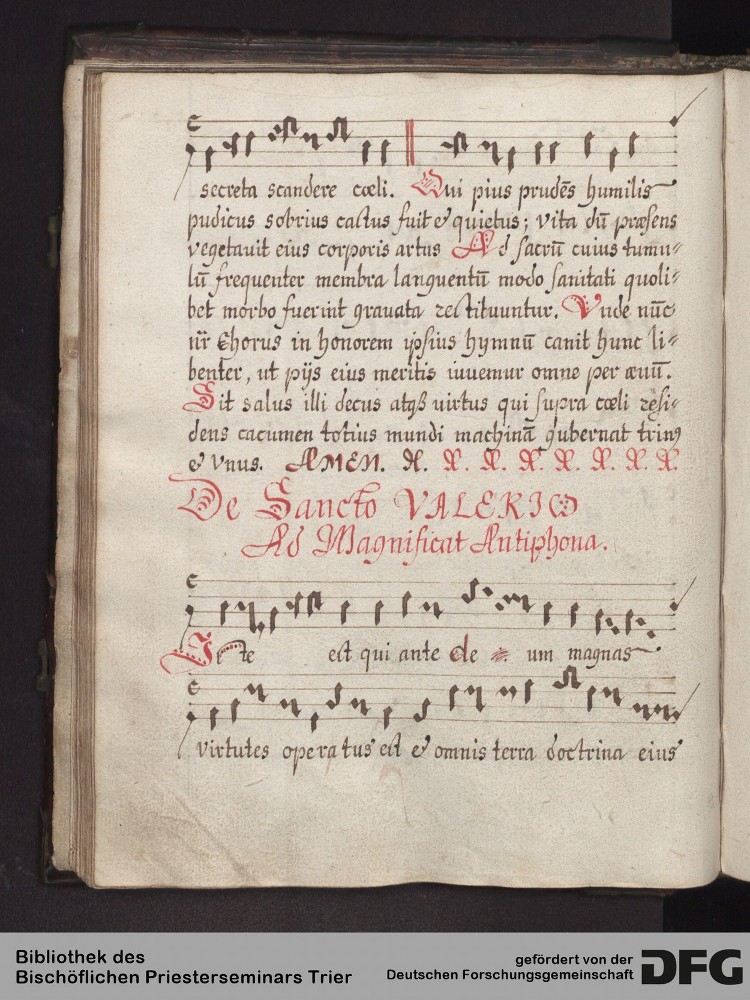 secreta scandere cœli. Qui pius prudēs humilis
pudicus sobrius castus fuit & quietus; vita dū præsens
vegetauit eius corporis artus Ad sacrū cuius tumu=
lū frequenter membra languentū modo sanitati quoli=
bet morbo fuerint grauata restituuntur. Vnde nūc
nr̄ Chorus in honorem ipsius hymnū canit hunc li=
benter, ut pijs eius meritis iuuemur omne per æuū.
Sit salus illi decus atqꝫ uirtus qui supra cœli resi=
dens cacumen totius mundi machinā gubernat trinꝰ
& Vnus. AMEN.
De Sancto VALERICO
Ad Magnificat Antiphona.
Iste est qui ante de um magnas
virtutes operatus est & omnis terra doctrina eius
Bibliothek des
Bischöflichen Priesterseminars Trier
gefördert von der
Deutschen Forschungsgemeinschaft
DFG